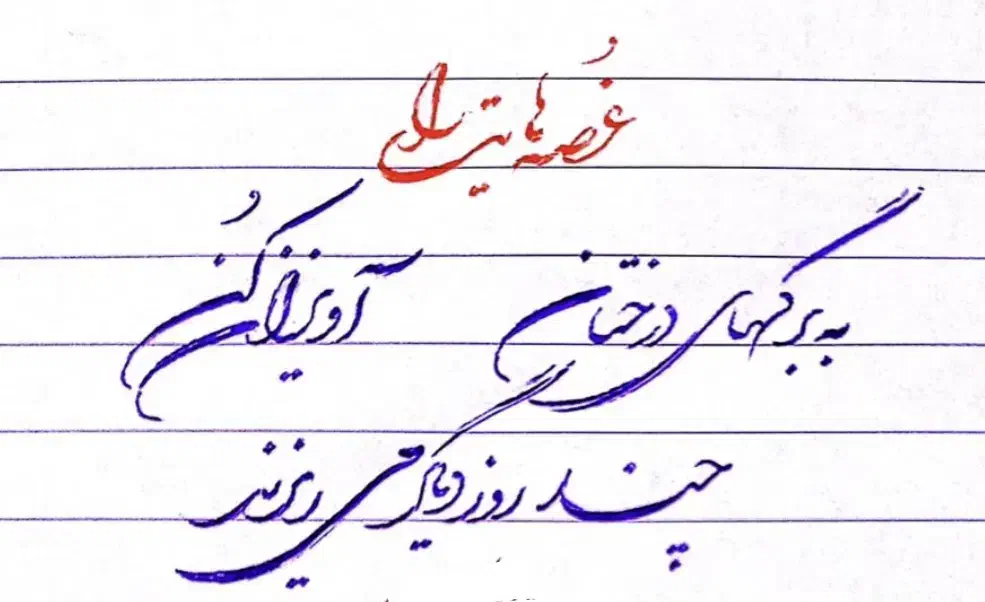 غصه هایت را
به برگهای درختان آویزان کُن
چند روز دیگر می ریزند